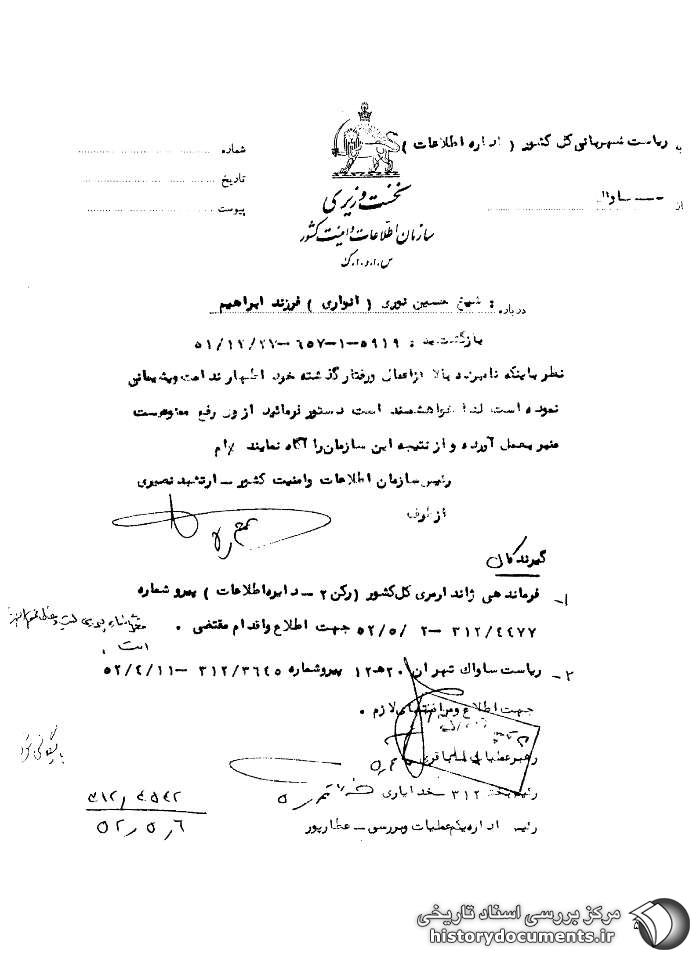 به ریاست شهربانی کل کشور ( اداره اطلاعات )
از ساواک
شماره
تاریخ
پیوست
نخست وزیری
سازمان اطلاعات و امنیت کشور
س.ا.و.ا.ک
درباره : شیخ حسین نوری ( انواری ) فرزند ابراهیم
بازگشت به : ۵۹۱۹-۱-۶۵۷-۵۱/۱۲/۲۷
نظر باینکه نامبرده بالا از اعمال و رفتار گذشته خود اظهار ندامت و پشیمانی
نموده است لذا خواهشمند است دستور فرمائید از وی رفع ممنوعیت
منبر بعمل آورده و از نتیجه این سازمان را آگاه نمایند
رئیس سازمان اطلاعات و امنیت کشور - ارتشبد نصیری
از طرف
گیرندگان
۱- فرماندهی ژاندارمری کل کشور (رکن ۲ - دایره اطلاعات ) پیرو شماره
۳۱۲/۴۴۷۷ -۲ /۵۲/۵ جهت اطلاع و اقدام مقتضی .
است .
۲- ریاست ساواک تهران ۲۰ ه ۱۲ پیرو شماره ۳۱۲/۳۶۴۵ -۵۲/۴/۱۱
جهت اطلاع و مراقبتهای لازم .
رهبر عملیات
رئیس بخش ۳۱۲
رئیس اداره یکم عملیات و بررسی - عطارپور
بایگانی شود
۳۱۲/۴۵۴۲
۵۲/۵/۶
مرکز بررسی اسناد تاریخی
historydocuments.ir